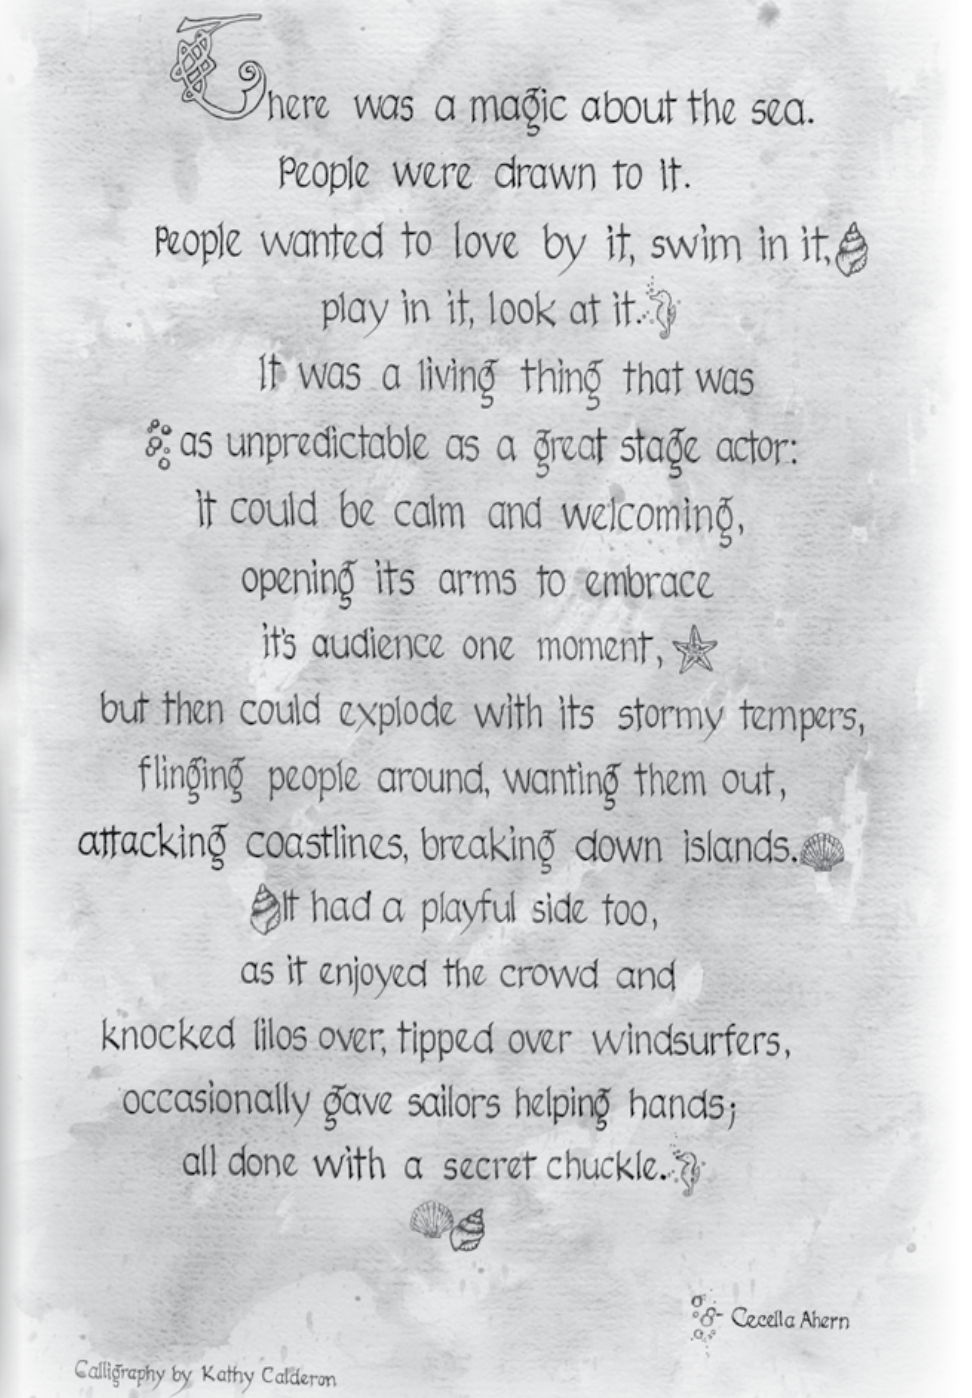 There was a magic about the sea.
People were drawn to it.
People wanted to love by it, swim in it,
play in it, look at it.
It was a living thing that was
as unpredictable as a great stage actor:
it could be calm and welcoming,
opening its arms to embrace
it's audience one moment,
but then could explode with its stormy tempers,
flinging people around, wanting them out,
attacking coastlines, breaking down islands.
It had a playful side too,
as it enjoyed the crowd and
knocked lilos over, tipped over windsurfers,
occasionally gave sailors helping hands;
all done with a secret chuckle.
- Cecella Ahern
Calligraphy by Kathy Calderon